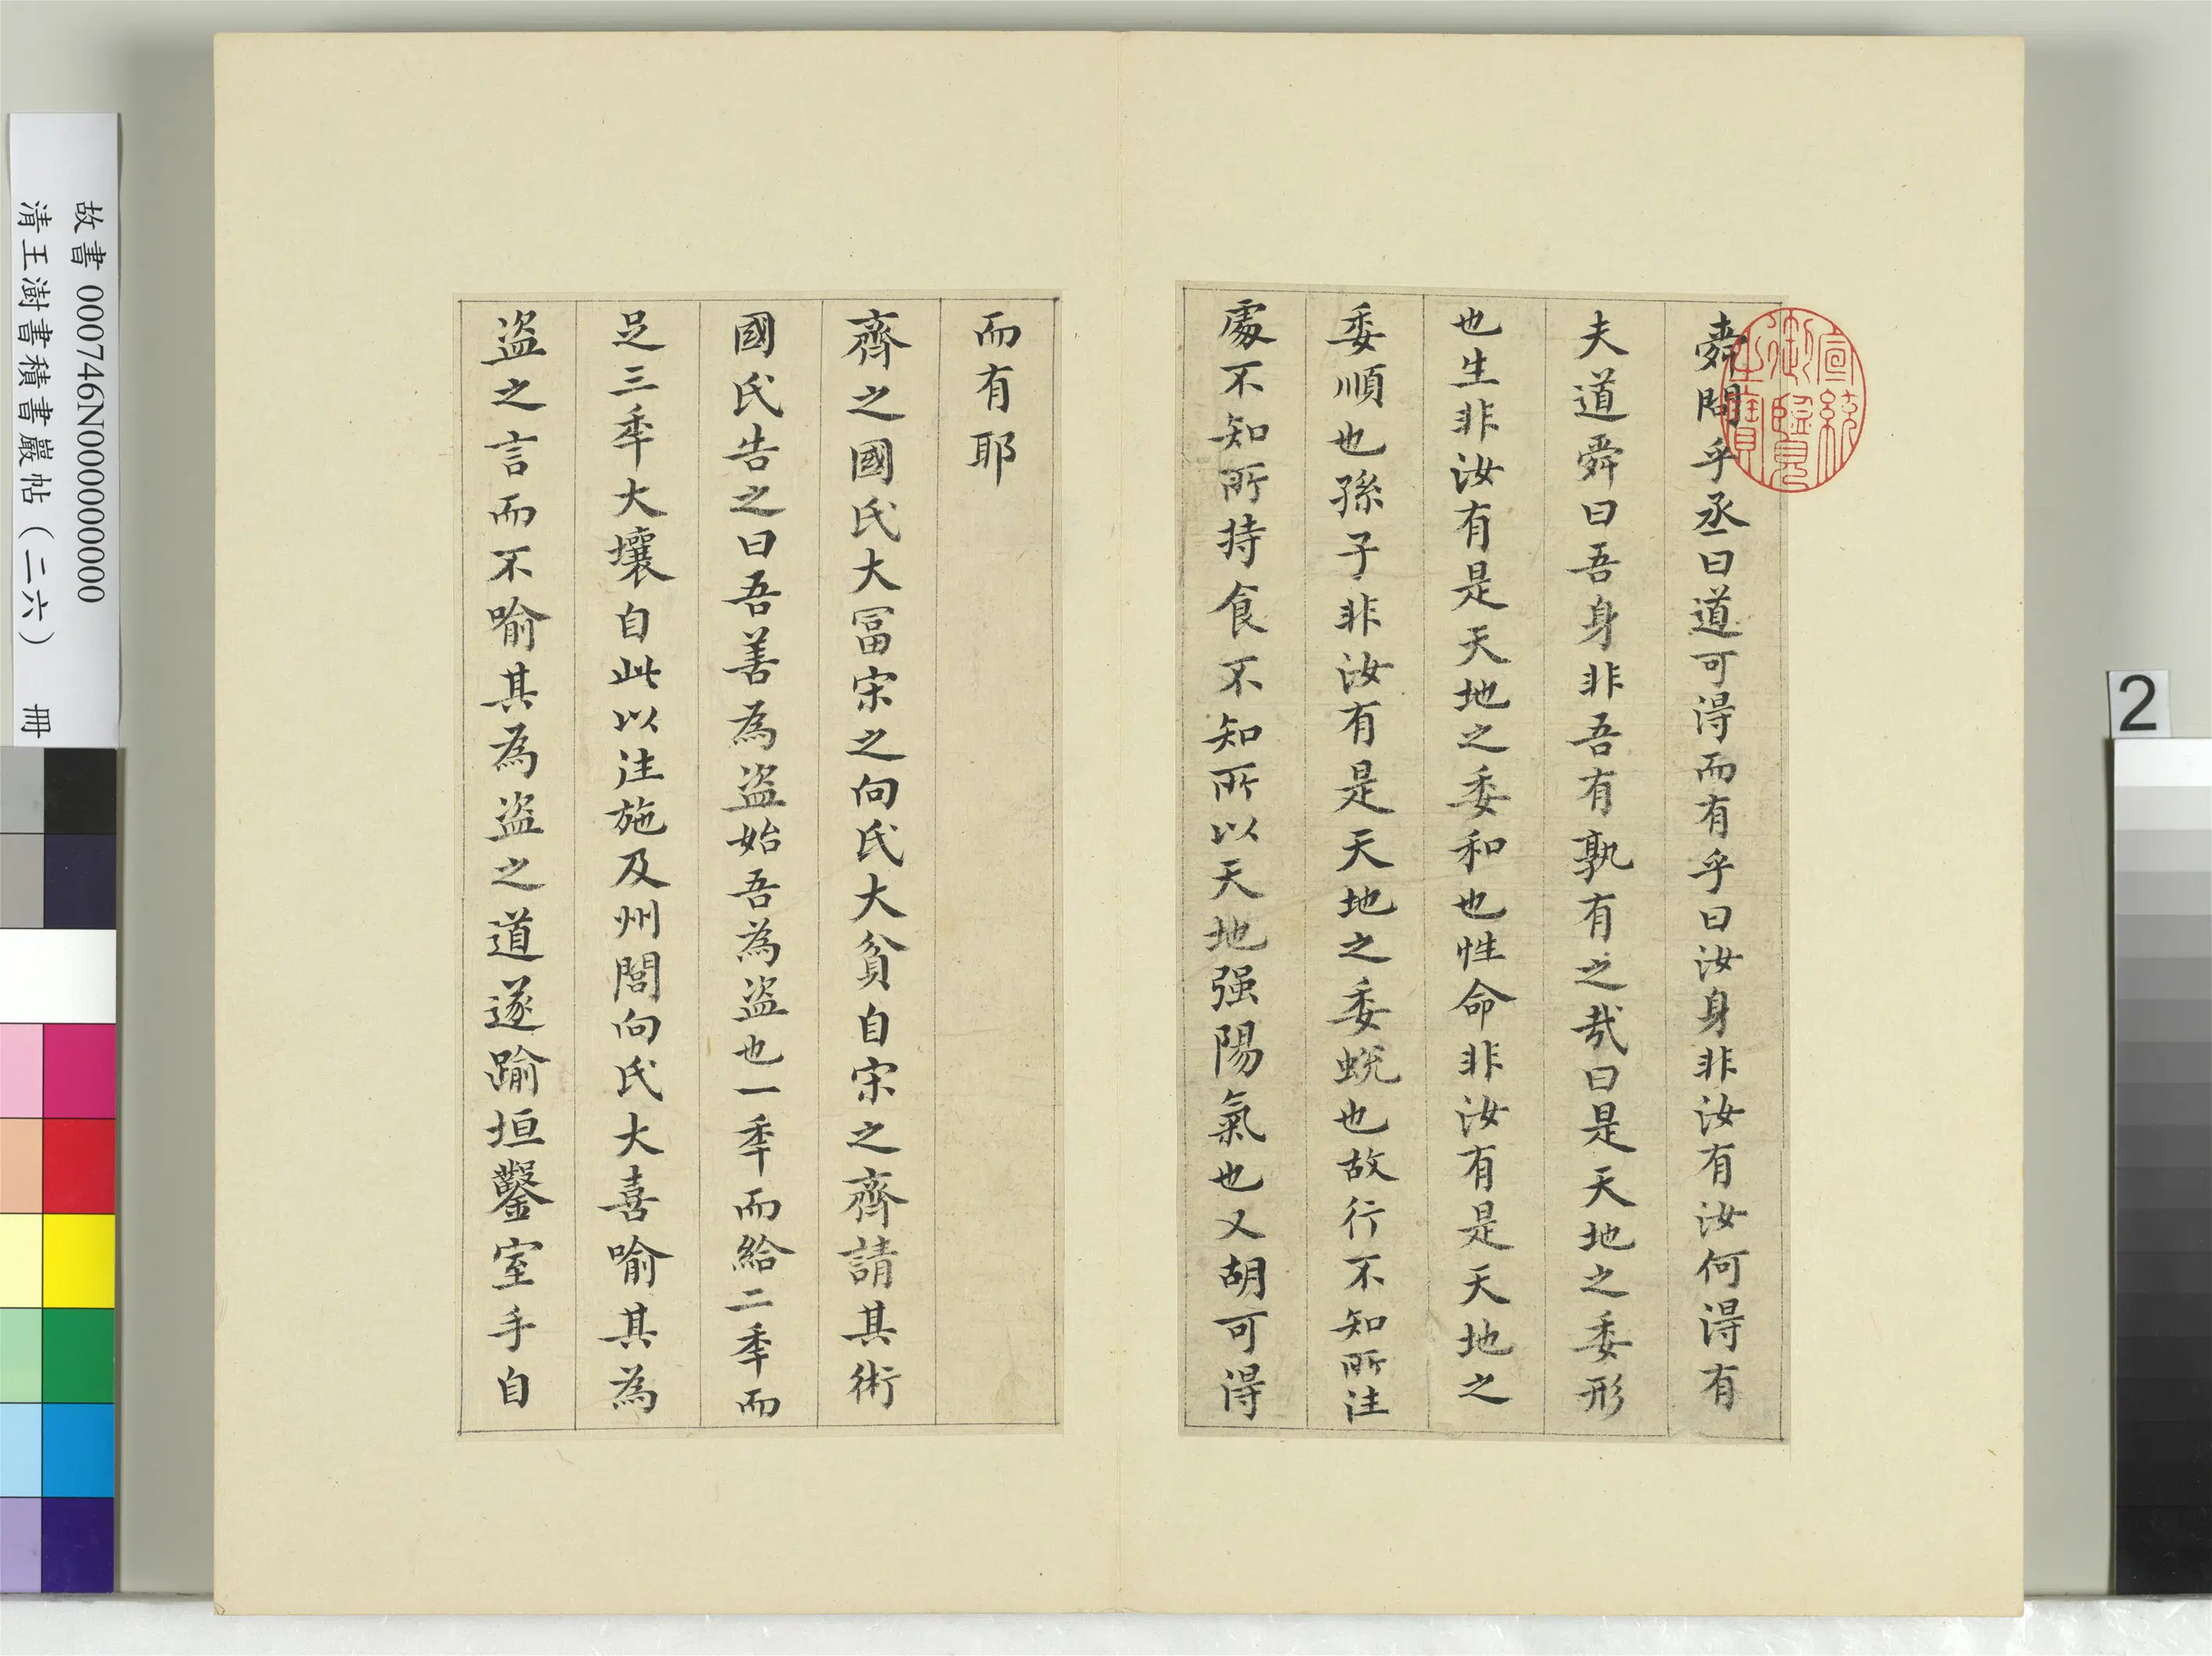 舜問乎丞曰道可得而有乎曰汝身非汝有汝何得有
夫道舜曰吾身非吾有孰有之哉曰是天地之委形
也生非汝有是天地之委和也性命非汝有是天地之
委順也孫子非汝有是天地之委蛻也故行不知所往
處不知所持食不知所以天地强陽氣也又胡可得
而有耶
齊之國氏大冨宋之向氏大貧自宋之齊請其術
國氏告之曰吾善為盜始吾為盜也一秊而給二秊而
足三秊大壤自此以往施及州閭向氏大喜喻其為
盜之言而不喻其為盜之道遂踰垣鑿室手自
宣統御覽之寶
故書 000746N000000000
清王澍書積書巖帖（二六） 冊
2